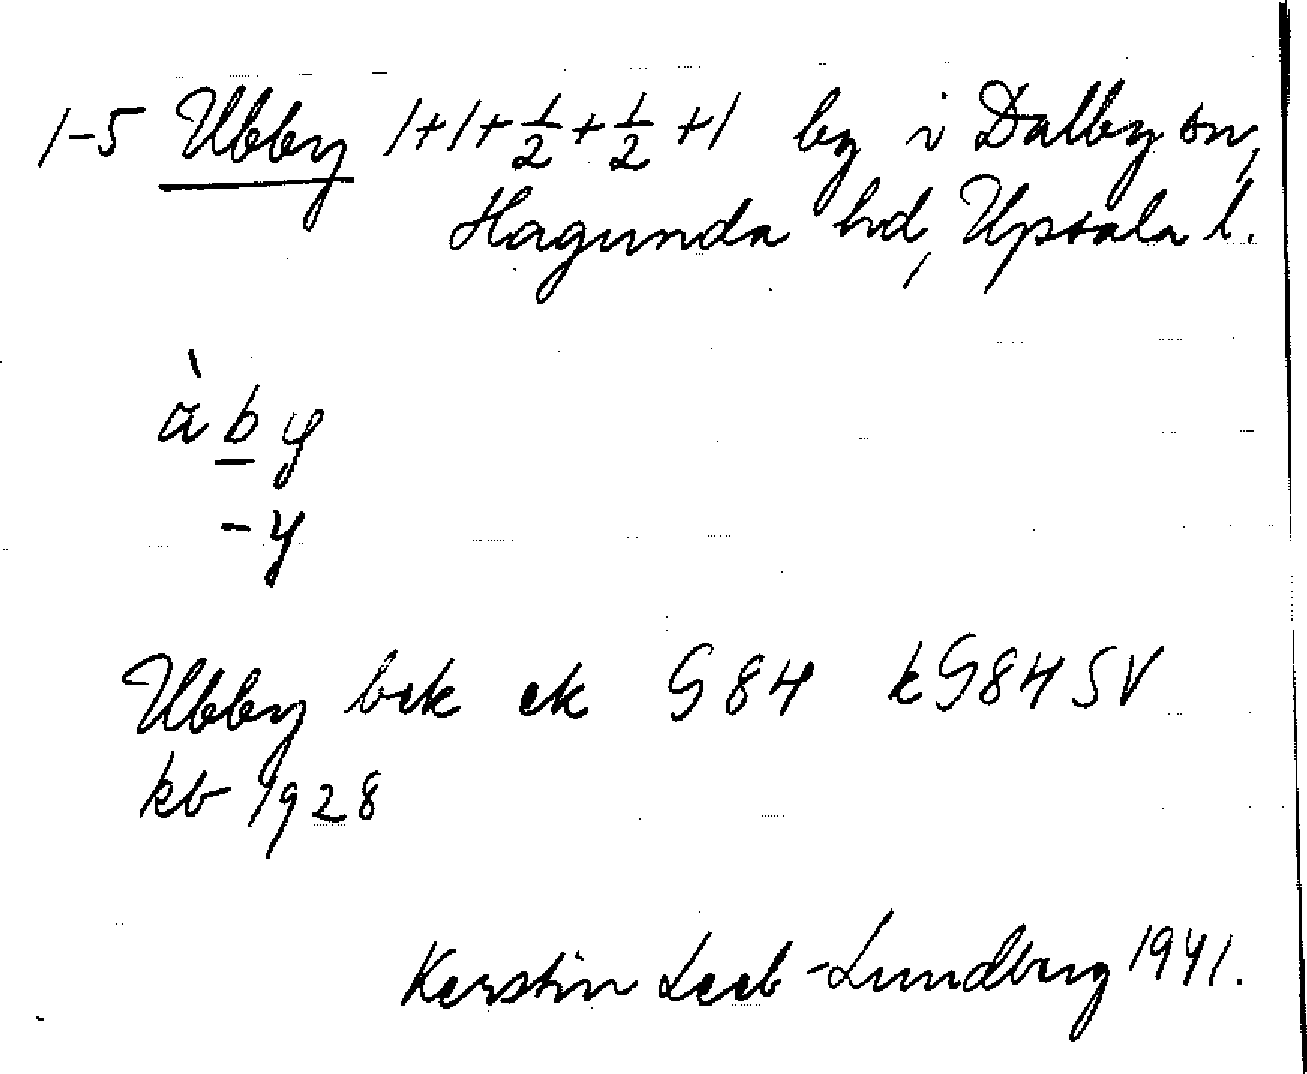 1-5 Ubby 1+1+½+½+1 by i Dalby sn,
Hagunda hd, Upsala l.
ab̲y
-y
Ubby bek ek G84 kG84SV
kb 1928
Kerstin Leeb-Lundberg 1941.